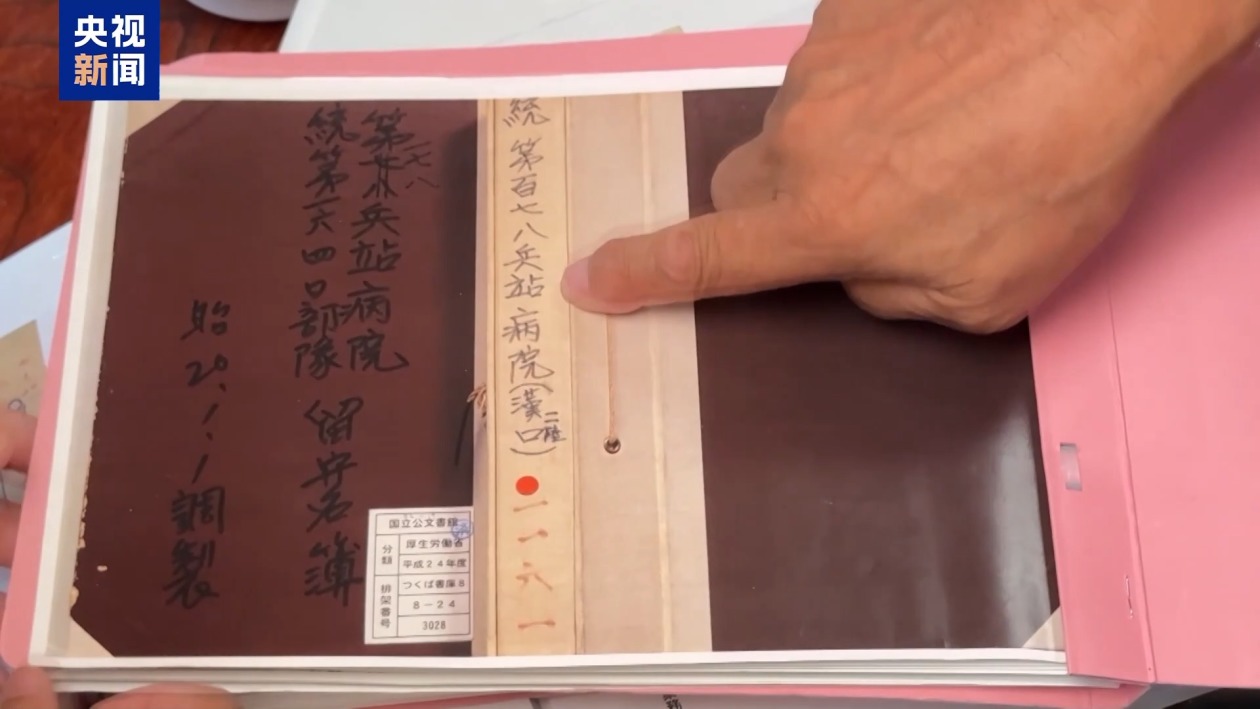 央视
新闻
統 第百七八兵站病院(漢口二陸)
一一六一
第一七八兵站病院
統第一六四〇部隊 留守名簿
昭20.1.1調製
国立公文書館
分類
厚生労働省
平成24年度
排架番号
つくば書庫8
8-24
3028